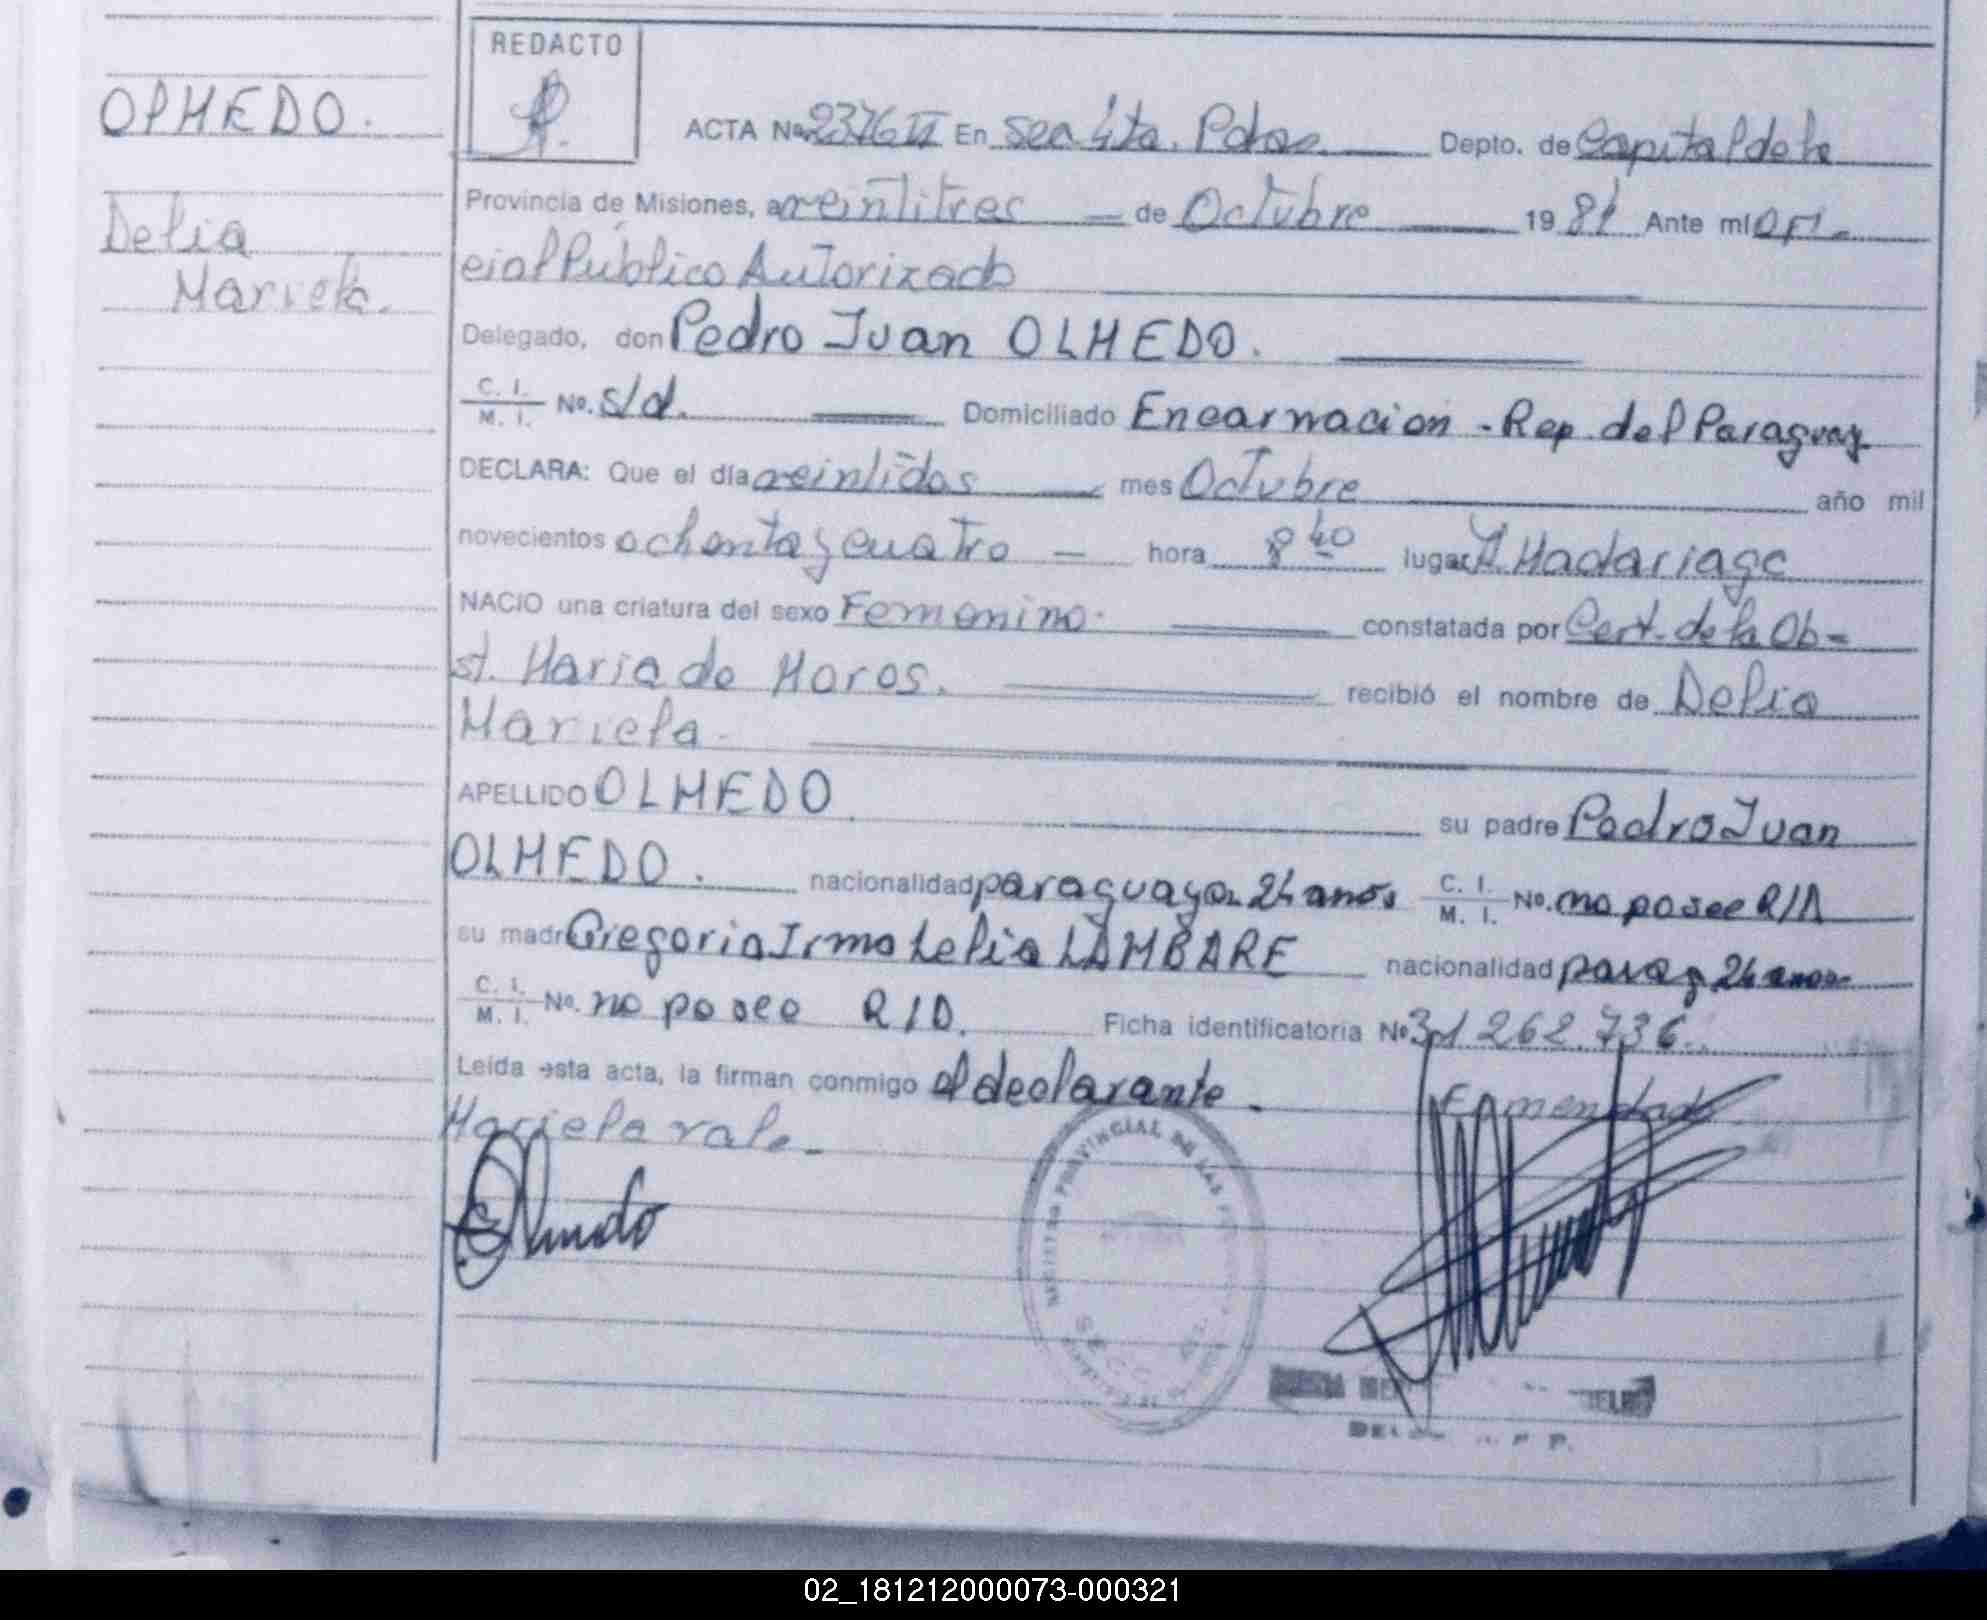 REDACTO
OLMEDO.
Delia
Mariela.
ACTA No. 2376 VI En Sec 4ta. Pdas. Depto. de Capital de la
Provincia de Misiones, a veintitres de Octubre 1984 Ante mí Ofi-
cial Público Autorizado
Delegado, don Pedro Juan OLMEDO.
C. I. / M. I. No. s/d. Domiciliado Encarnacion - Rep. del Paraguay
DECLARA: Que el día veintidos mes Octubre año mil
novecientos ochenta y cuatro hora 8 40 lugar H. Madariaga
NACIO una criatura del sexo Femenino. constatada por Cert. de la Ob-
st. Maria de Moros. recibió el nombre de Delia
Mariela.
APELLIDO OLMEDO su padre Pedro Juan
OLMEDO. nacionalidad paraguaya 24 anos C. I. / M. I. No. no posee R/D
su madre Gregoria Irma Lelia LAMBARE nacionalidad parag 24 anos
C. I. / M. I. No. no posee R/D. Ficha identificatoria No 31 262.736.
Leída esta acta, la firman conmigo el declarante. Enmendado
Mariela vale.
Olmedo
REGISTRO PROVINCIAL DE LAS
02_181212000073-000321